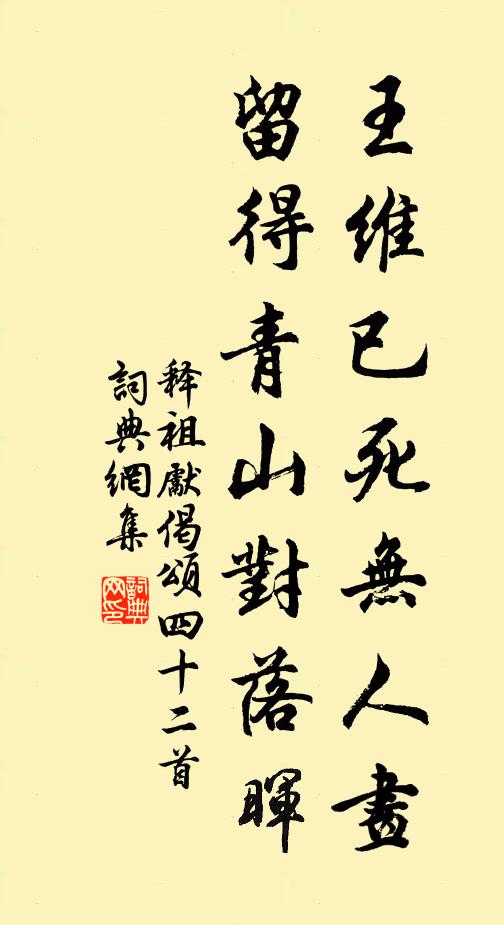 王維已死無人畫
留得青山對落暉
释祖獻偈頌四十二首
詞典網集